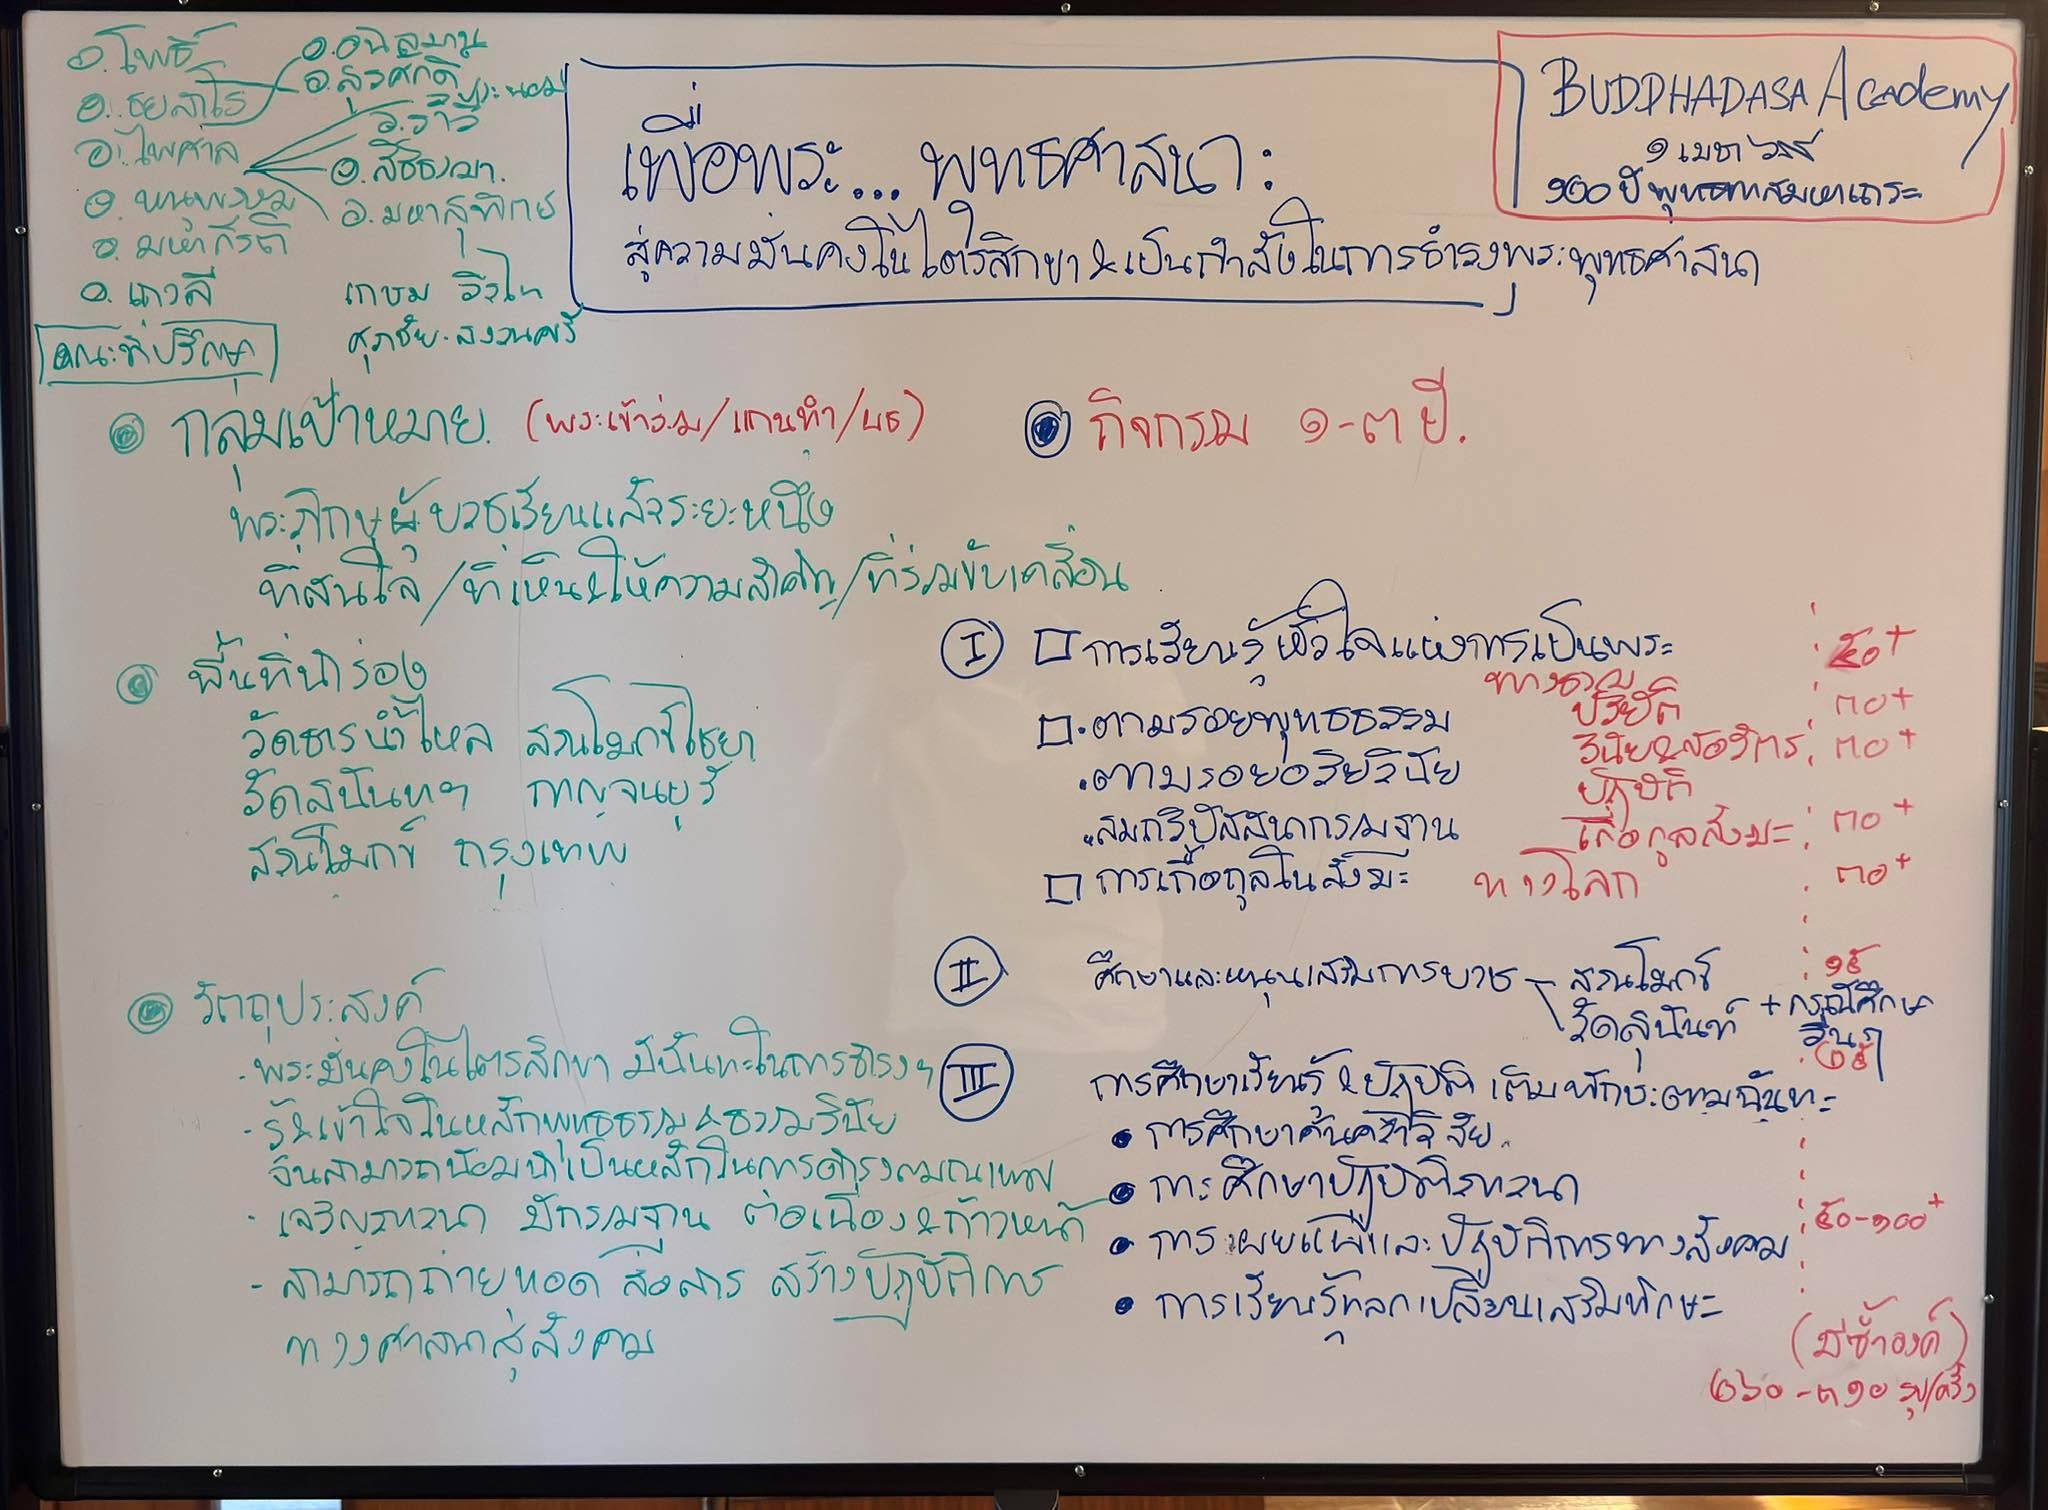 อ.โพธิ์
อ.ชยสาโร
อ.ไพศาล
อ.มหากีรติ
อ.เทวลี
คณะที่ปรึกษา
อ.อนิลมาน
อ.สุรศักดิ์
อ.ราวี
อ.มหาสุทิตย์
เกษม
ศุภชัย.
เพื่อพระ... พุทธศาสนา:
สู่ความมั่นคงในไตรสิกขา & เป็นกำลังในการธำรงพระพุทธศาสนา
BUDDHADASA Academy
๑ เมษา
๑๐๐ ปี พุทธทาสมหาเถระ
กลุ่มเป้าหมาย. (พระเข้าร่วม/แกนทำ/)
พระภิกษุผู้บวชเรียนแล้วระยะหนึ่ง
ที่สนใจ/ที่เห็น&ให้ความสำคัญ/ที่ร่วมขับเคลื่อน
พื้นที่นำร่อง
วัดธารน้ำไหล สวนโมกข์ไชยา
วัดสุนันทฯ กาญจนบุรี
สวนโมกข์ กรุงเทพ
วัตถุประสงค์
- พระมั่นคงในไตรสิกขา มีฉันทะในการธำรงฯ
- รู้&เข้าใจในหลักพุทธธรรม&ธรรมวินัย
จนสามารถน้อมนำเป็นหลักในการดำรงสมณเพศ
- เจริญภาวนา มีกรรมฐาน ต่อเนื่อง&ก้าวหน้า
- สามารถถ่ายทอด สื่อสาร สร้างปฏิบัติการ
ทางศาสนาสู่สังคม
กิจกรรม ๑-๓ ปี.
I การเรียนรู้หัวใจแห่งการเป็นพระ ๕๐+
ทางธรรม
ตามรอยพุทธธรรม ปริยัติ ๓๐+
ตามรอยอริยวินัย วินัย& ๓๐+
ปฏิบัติ
สมถวิปัสสนากรรมฐาน เกื้อกูลสังฆะ ๓๐+
การเกื้อกูลในสังฆะ ทางโลก ๓๐+
II ศึกษาและหนุนเสริมการบวช สวนโมกข์ ๑๕
วัดสุนันท์ + กรณีศึกษา
อื่นๆ
III การศึกษาเรียนรู้ & ปฏิบัติ เติมทักษะตามฉันทะ
การศึกษาค้นคว้าวิจัย.
การศึกษาปฏิบัติภาวนา
การเผยแผ่และปฏิบัติการทางสังคม ๕๐-๑๐๐+
การเรียนรู้แลกเปลี่ยนเสริมทักษะ
(มีซ้ำองค์)
๒๖๐ - ๓๑๐ รูป/ครั้ง